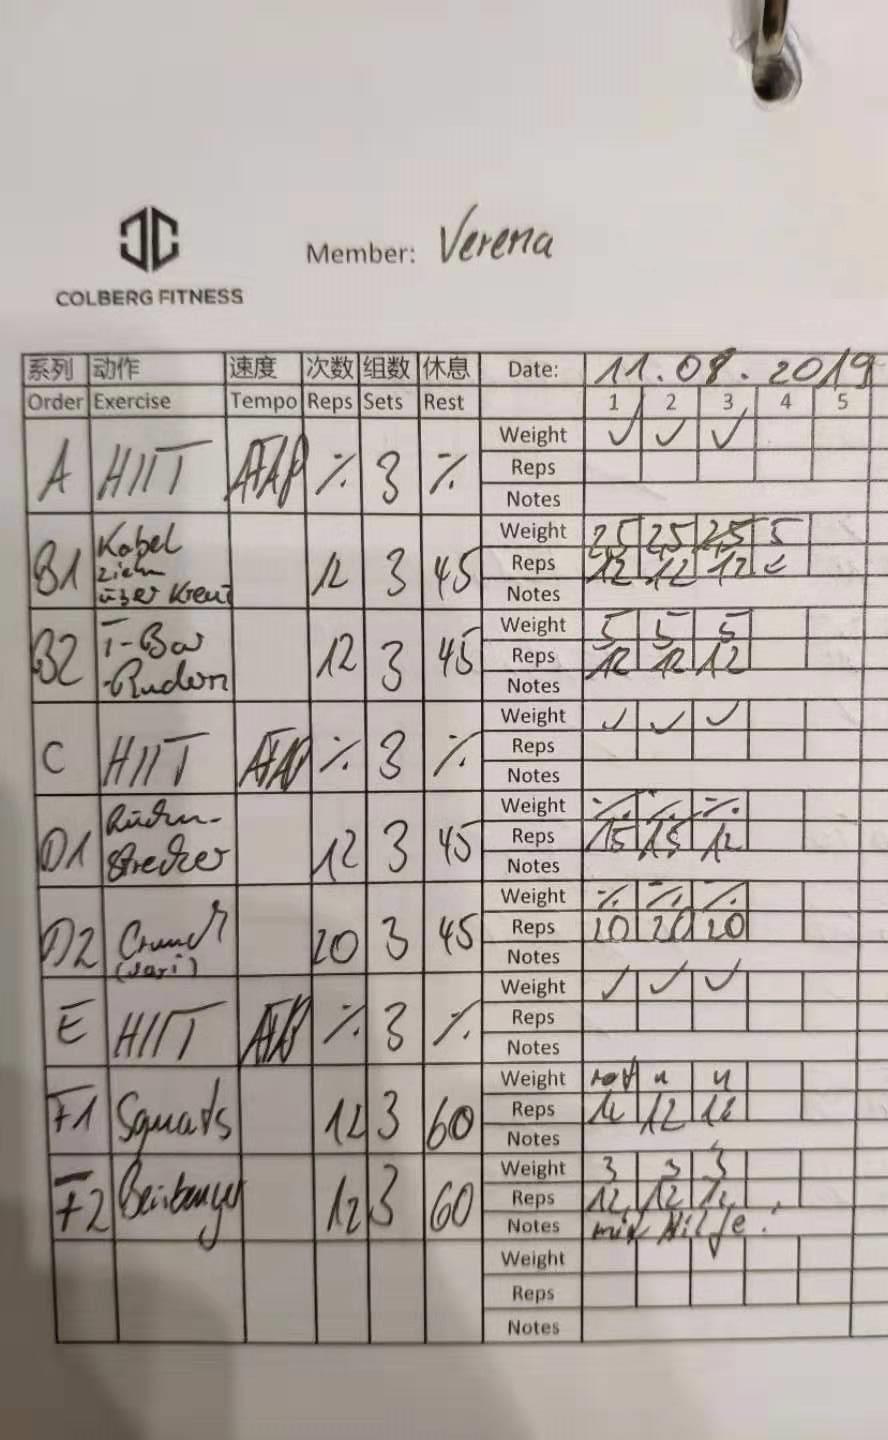 Member: Verena
COLBERG FITNESS
系列 动作 速度 次数 组数 休息 Date: 11.08.2019
Order Exercise Tempo Reps Sets Rest 1 2 3 4 5
A HIIT % 3 %
Weight ✓ ✓ ✓
Reps
Notes
B1 Kabel ziehn über Kreuz 12 3 45
Weight 2,5 2,5 2,5 5
Reps 12 12 12
Notes
B2 T-Bar -Rudern 12 3 45
Weight 5 5 5
Reps 12 12 12
Notes
C HIIT % 3 %
Weight ✓ ✓ ✓
Reps
Notes
D1 Rücken- strecker 12 3 45
Weight % % %
Reps 15 15 12
Notes
D2 Crunch 20 3 45
Weight % % %
Reps 20 20 20
Notes
E HIIT % 3 %
Weight ✓ ✓ ✓
Reps
Notes
F1 Squats 12 3 60
Weight rot " "
Reps 12 12
Notes
F2 Beinbeuger 12 3 60
Weight 3 3 3
Reps 12 12 12
Notes mit Hilfe!
Weight
Reps
Notes